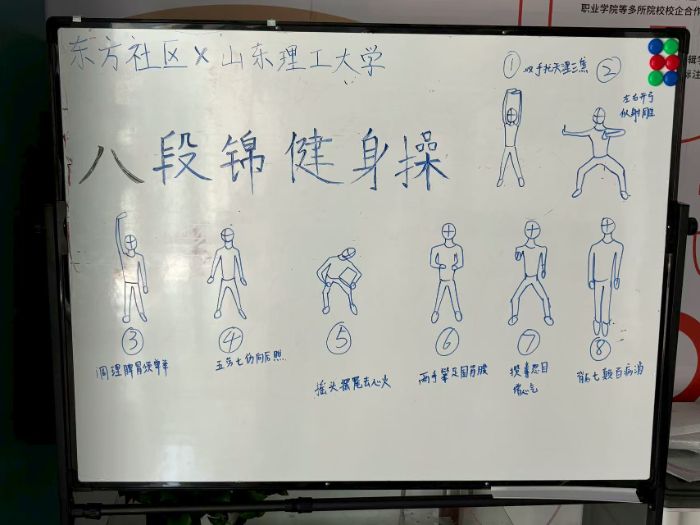 职业学院等多所院校校企合作
东方社区 × 山东理工大学
① 双手托天理三焦 ②
左右开弓
似射雕
八段锦健身操
③ ④ ⑤ ⑥ ⑦ ⑧
调理脾胃须单举
五劳七伤向后照
摇头摆尾去心火
两手攀足固肾腰
攒拳怒目
增气
背后七颠百病消